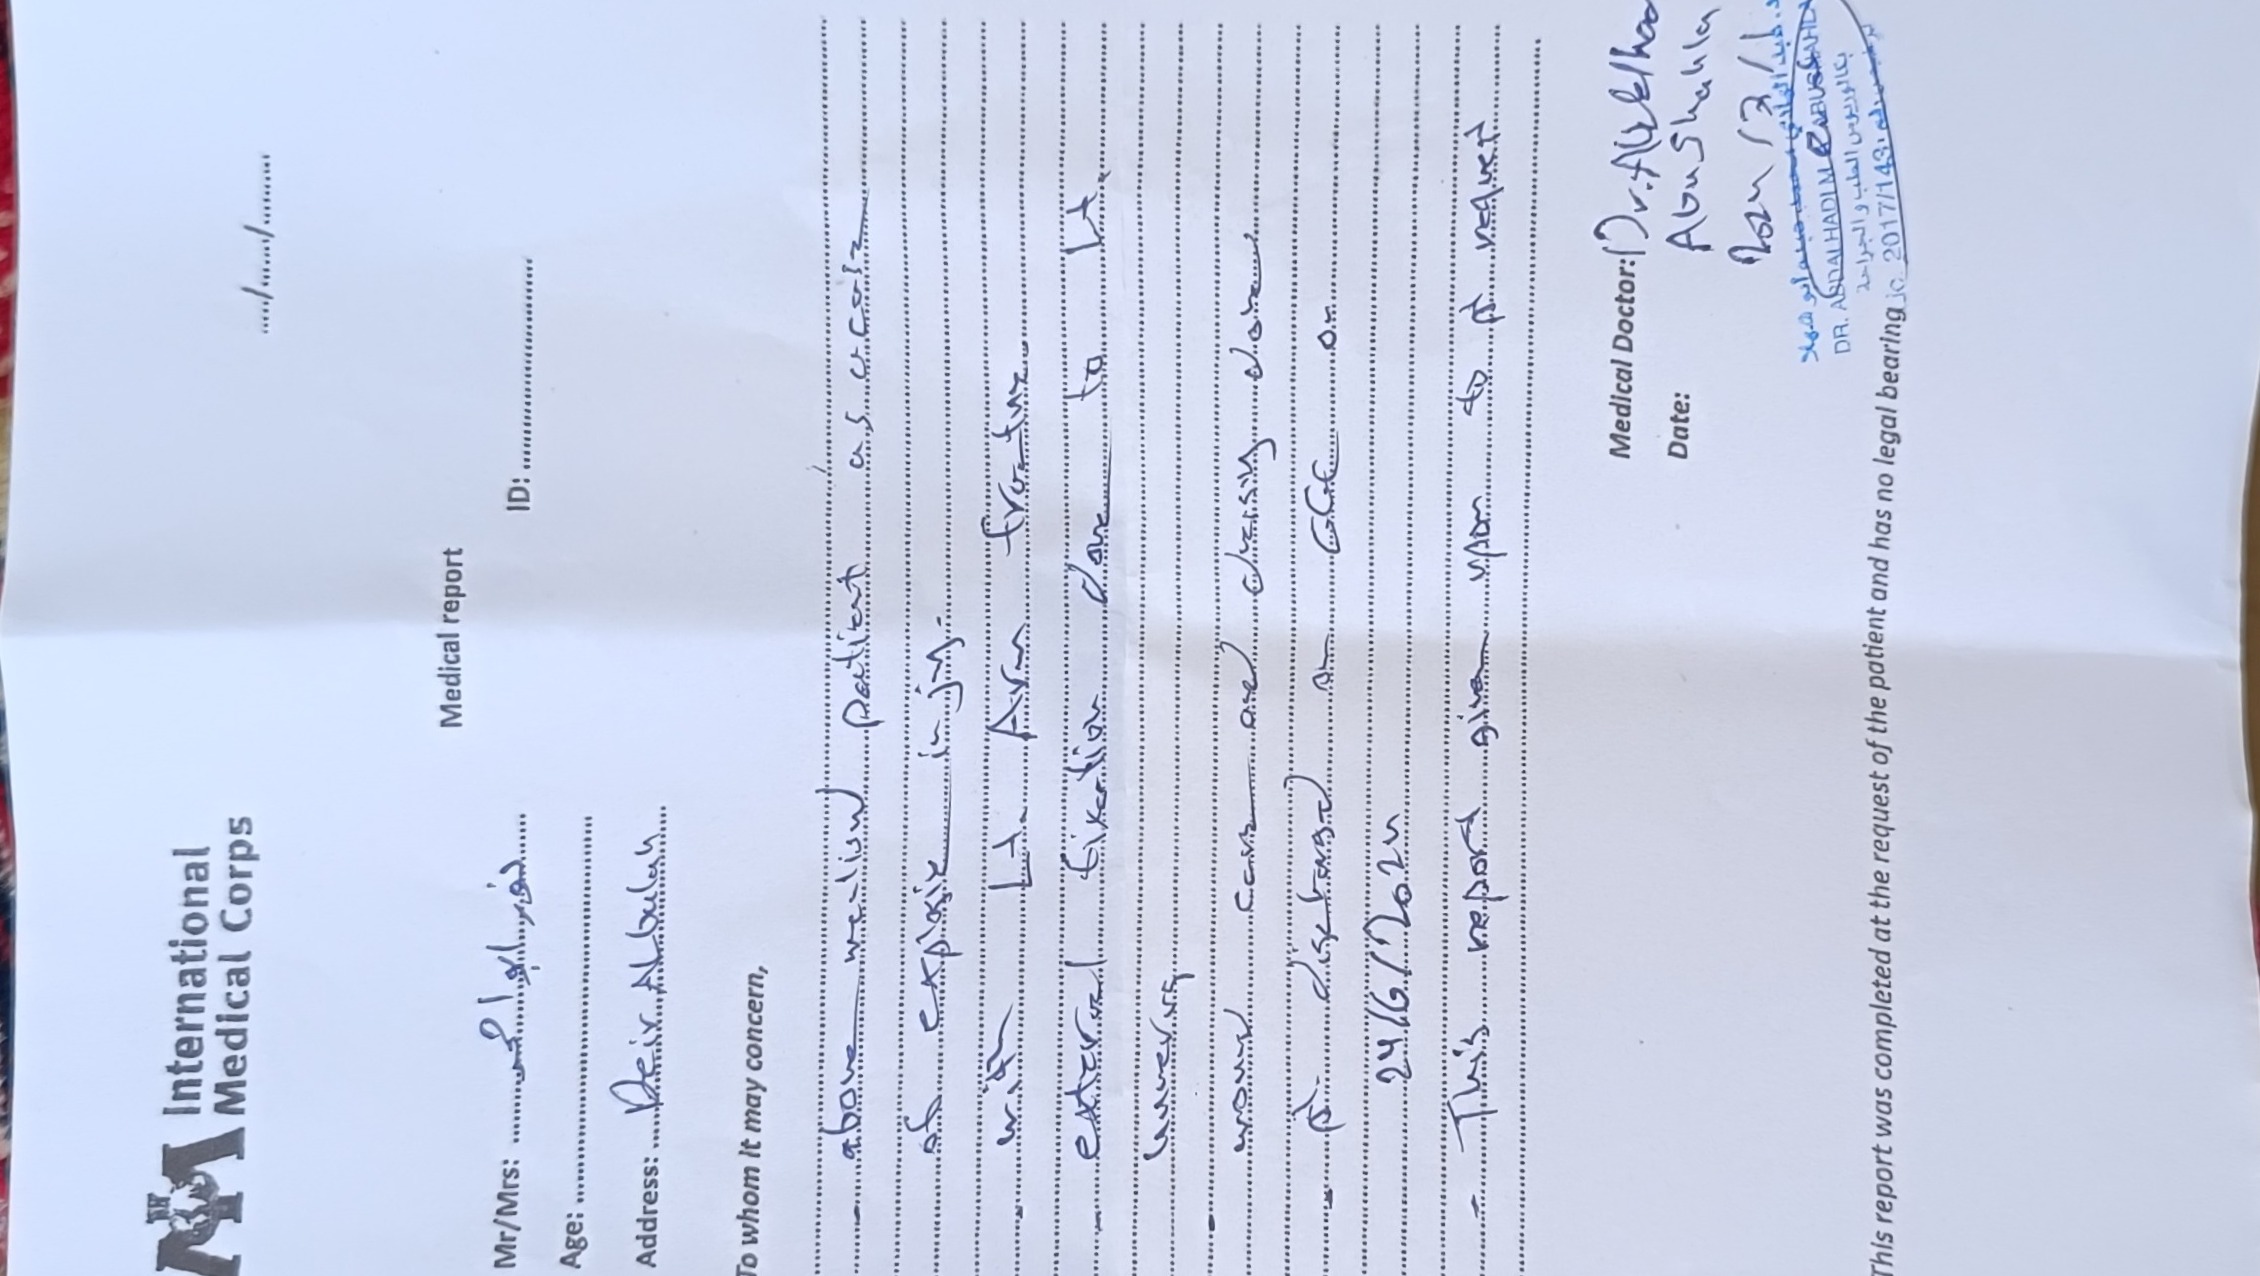 International
Medical Corps
..../....../........
Medical report
Mr/Mrs:
ID:
Age:
Address: Deir Albalah
To whom it may concern,
- above mentiond patient as a case
of explosie injury.
- with Lt. Arm fracture
- external fixation done to Lt.
humerus
- wound care and dressing done
- pt. discharged on GCC on
24/6/2024
- This report given upon to pt request
Medical Doctor: Dr. Abdelhad
Abu Shahla
Date:
DR. ABDALHADI M
2017/143
This report was completed at the request of the patient and has no legal bearing